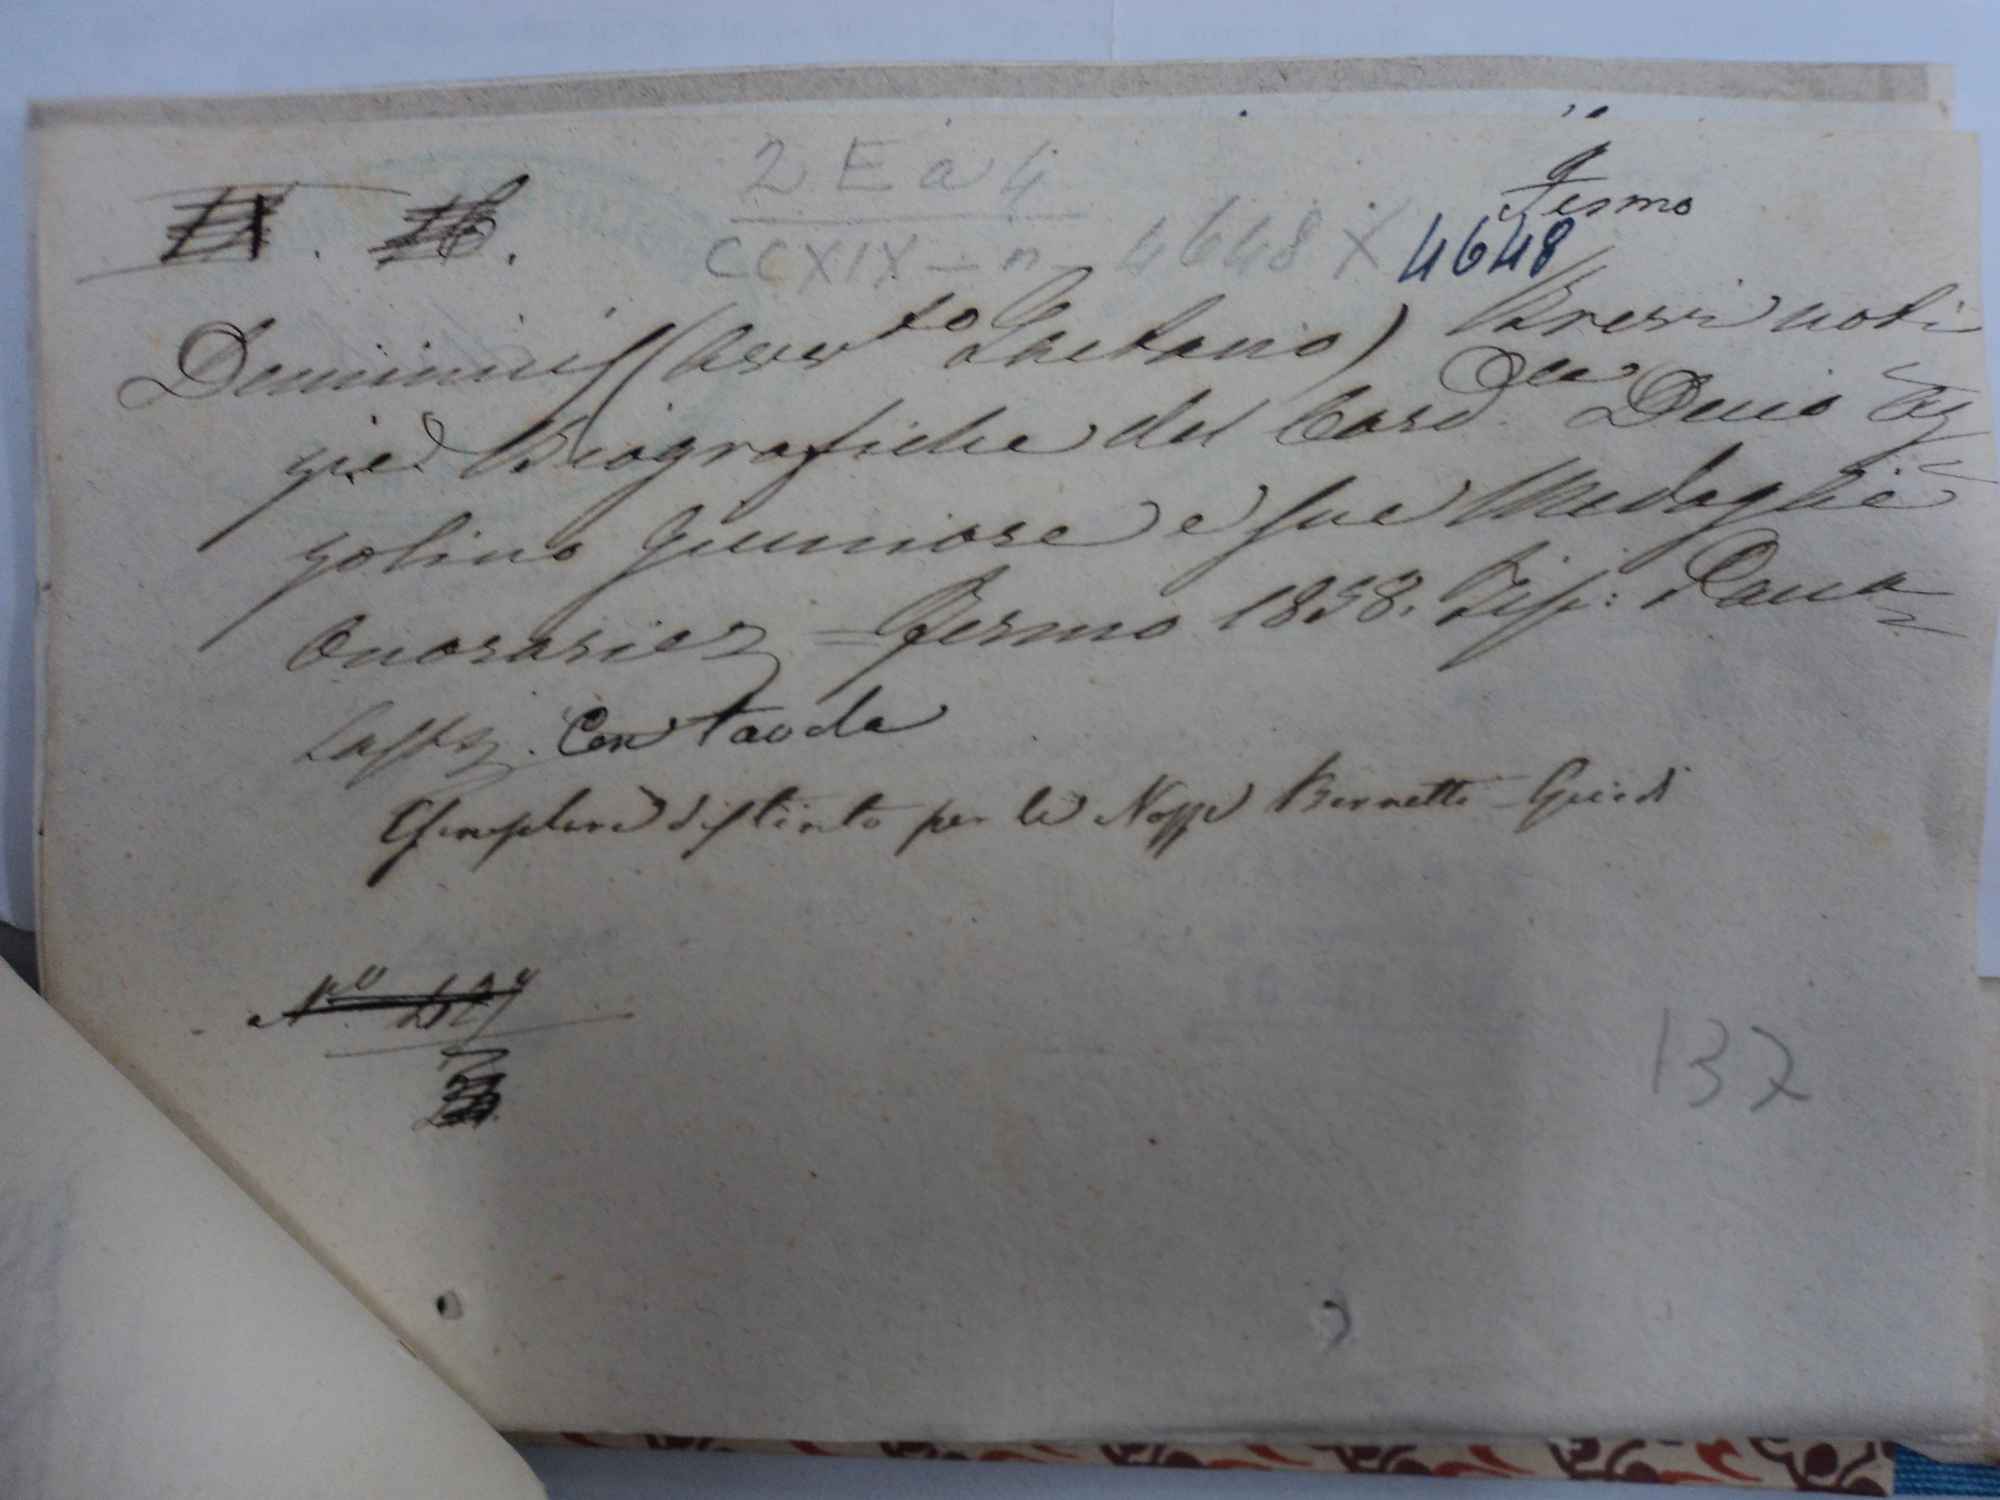 2 E a 4
Fermo
CCXIX - n. 4648 X 4648
Deminicis (Avv.to Gaetano) Brevi noti
zie Biografiche del Card. Decio Az
zolino Juniore e sue Medaglie
Onorarie = Fermo 1858. Tip: Pacca
sassi. Con tavola
Esemplare distinto per le Nozze Bernetti - Guidi
N.o
137